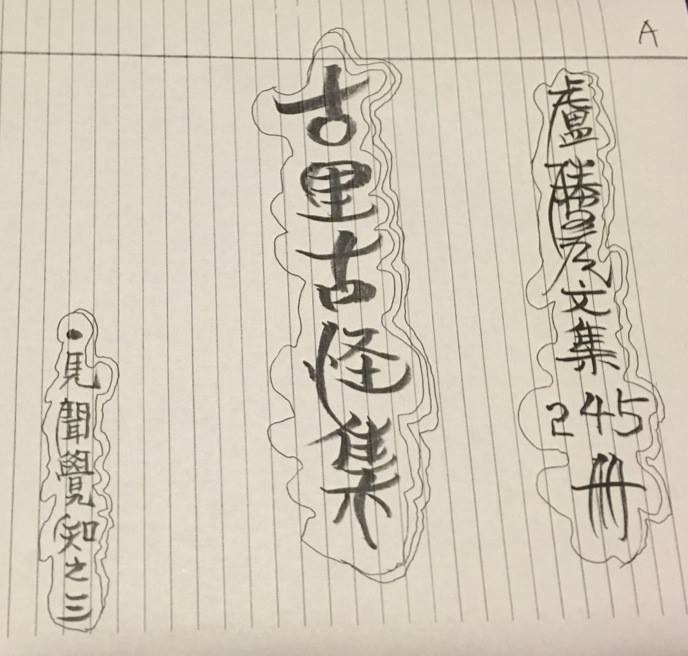 A
盧勝彥文集245冊
古里古怪集
•見聞覺知之三